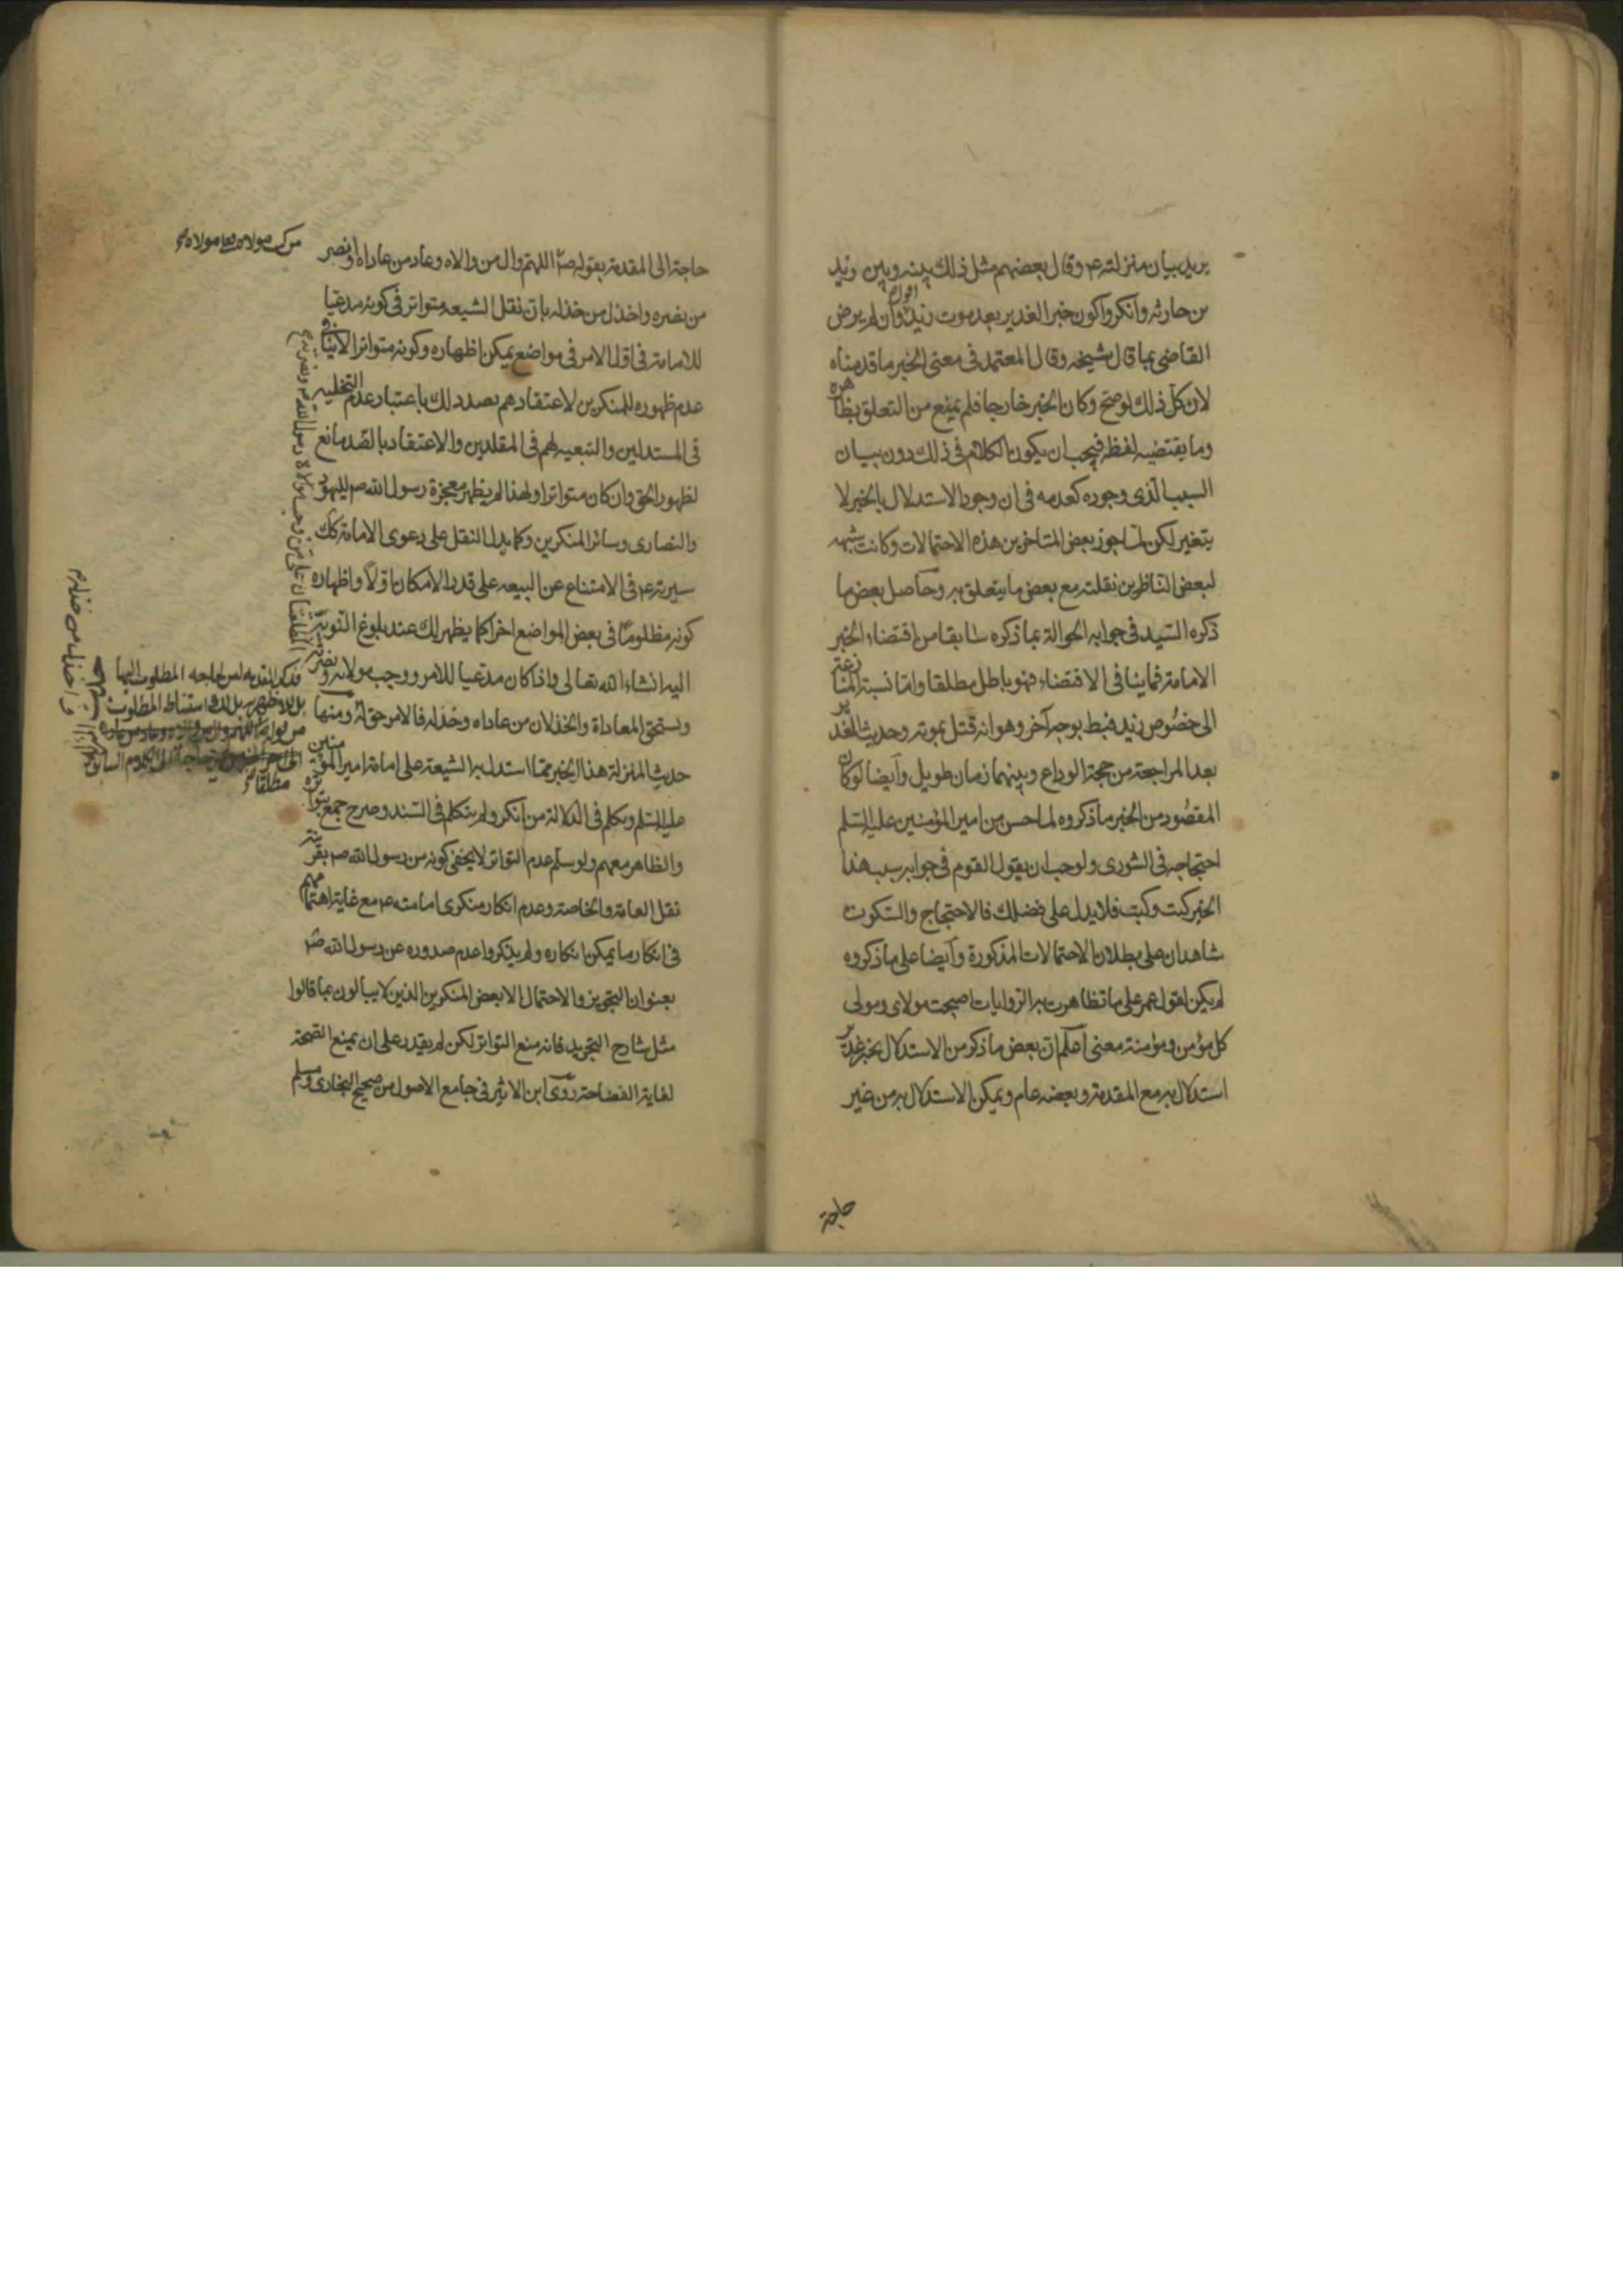 يريد بيان منزلته ع وقال بعضهم مثل ذلك بينه وبين زيد
بن حارثه وانكروا كون خبر الغدير بعد موت زيد اقول وان لم يرض
القاضي بما قال شيخه وقال المعتمد في معنى الخبر ما قدمناه
لان كل ذلك لو صح وكان الخبر خارجا فلم يمنع من التعلق بظاهره
وما يقتضيه لفظه فيجب ان يكون الكلام في ذلك دون بيان
السبب الذي وجوده كعدمه في ان وجود الاستدلال بالخبر لا
يتغير لكن لما جوز بعض المتاخرين هذه الاحتمالات وكانت شبهه
لبعض الناظرين نقلته مع بعض ما يتعلق به وحاصل بعض ما
ذكره السيد في جوابه الحوالة بما ذكره سابقا من اقتضاء الخبر
الامامة فما ينافى الاقتضاء فهو باطل مطلقا واما نسبة المنازعة
الى خصوص زيد فبط بوجه آخر وهو انه قتل بموته وحديث الغدير
بعد المراجعة من حجة الوداع وبينهما زمان طويل وايضا لو كان
المقصود من الخبر ما ذكروه لما حسن من امير المؤمنين عليه السلم
احتجاجه في الشورى ولوجب ان يقول القوم في جوابه سبب هذا
الخبر كيت وكيت فلا يدل على فضلك فالاحتجاج والسكوت
شاهدان على بطلان الاحتمالات المذكورة وايضا على ما ذكروه
لم يكن لقول عمر على ما تظاهرت به الروايات اصبحت مولاى ومولى
كل مؤمن ومؤمنة معنى اعلم ان بعض ما ذكر من الاستدلال بخبر غدير
استدلال به مع المقدمة وبعضه عام ويمكن الاستدلال به من غير
حاجة
حاجة الى المقدمة بقوله ص اللهم وال من والاه وعاد من عاداه وانصر
من نصره واخذل من خذله بان نقل الشيعه متواتر في كونه مدعيا
للامامة في اقل الامر في مواضع يمكن اظهاره وكونه متواترا لا ينافي
عدم ظهوره للمنكرين لاعتقادهم بصدد لك باعتبار عدم التخليه
في المستدلين والتبعيه لهم في المقلدين والاعتقاد بالضد مانع
لظهور الحق وان كان متواترا ولهذا لم يظهر معجزة رسول الله ص لليهود
والنصارى وسائر المنكرين وكما يدل النقل على دعوى الامامة كك
سيرته ع في الامتناع عن البيعه على قدر الامكان اولا واظهاره
كونه مظلوما في بعض المواضع اخرا كما يظهر لك عند بلوغ النوبة
اليه انشاء الله تعالى واذا كان مدعيا للامر ووجب مولاته ونصرته
ويستحق المعاداة والخذلان من عاداه وخذله فالامر حق له ومنها
حديث المنزلة هذا الخبر مما استدل به الشيعة على امامة امير المؤمنين
عليه السلم وتكلم في الدلالة من انكر ولم يتكلم في السند وصرح جمع بتواتره
والظاهر معهم ولو سلم عدم التواتر لا يخفى كونه من رسول الله ص بقرينة
نقل العامة والخاصة وعدم انكار منكرى امامته ع مع غاية اهتمامهم
في انكار ما يمكن انكاره ولم يذكروا عدم صدوره عن رسول الله ص
بعنوان التجويز والاحتمال الا بعض المنكرين الذين لا يبالون بما قالوا
مثل شارح التجريد فانه منع التواتر لكن لم يقدر على ان يمنع الصحة
لغاية الفضاحة روى ابن الاثير في جامع الاصول من صحيح البخاري ومسلم
من كنت مولاه فعلي مولاه
فذكر المقدمه ليس لحاجه المطلوب اليها
استنباط المطلوب
من قوله ص اللهم وال من والاه وعاد من عاداه
الى الكلام السابق
مطلقا
واخذل من خذله